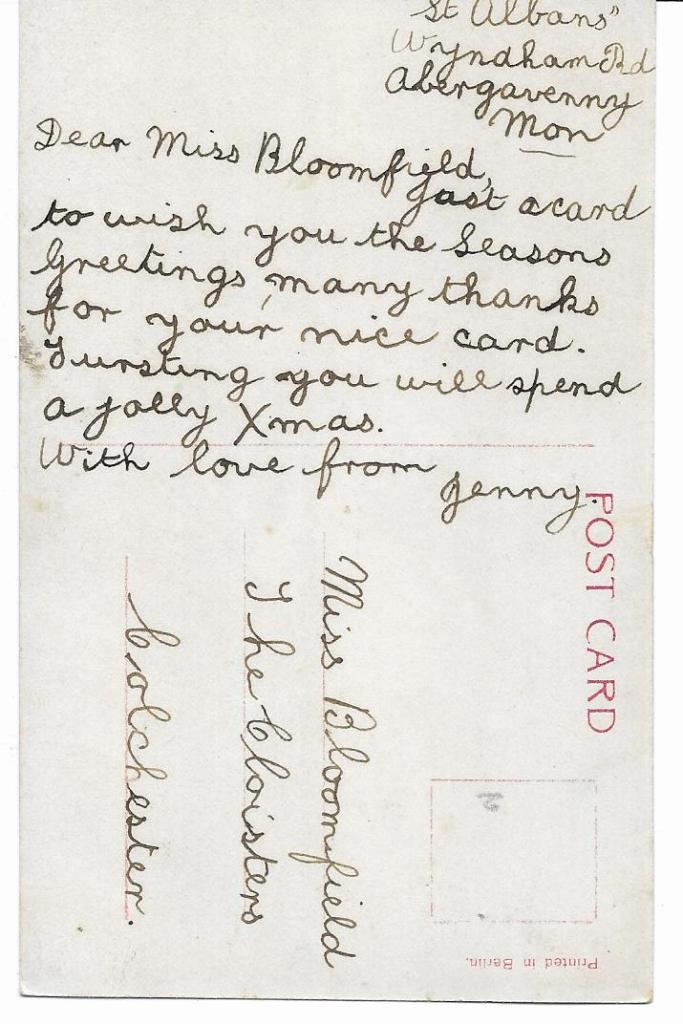 St Albans"
Wyndham Rd
Abergavenny
Mon
Dear Miss Bloomfield,
Just a card
to wish you the Seasons
Greetings, many thanks
for your nice card.
Tursting you will spend
a jolly Xmas.
With love from
Jenny.
POST CARD
Miss Bloomfield
The Cloisters
Colchester.
2
Printed in Berlin.